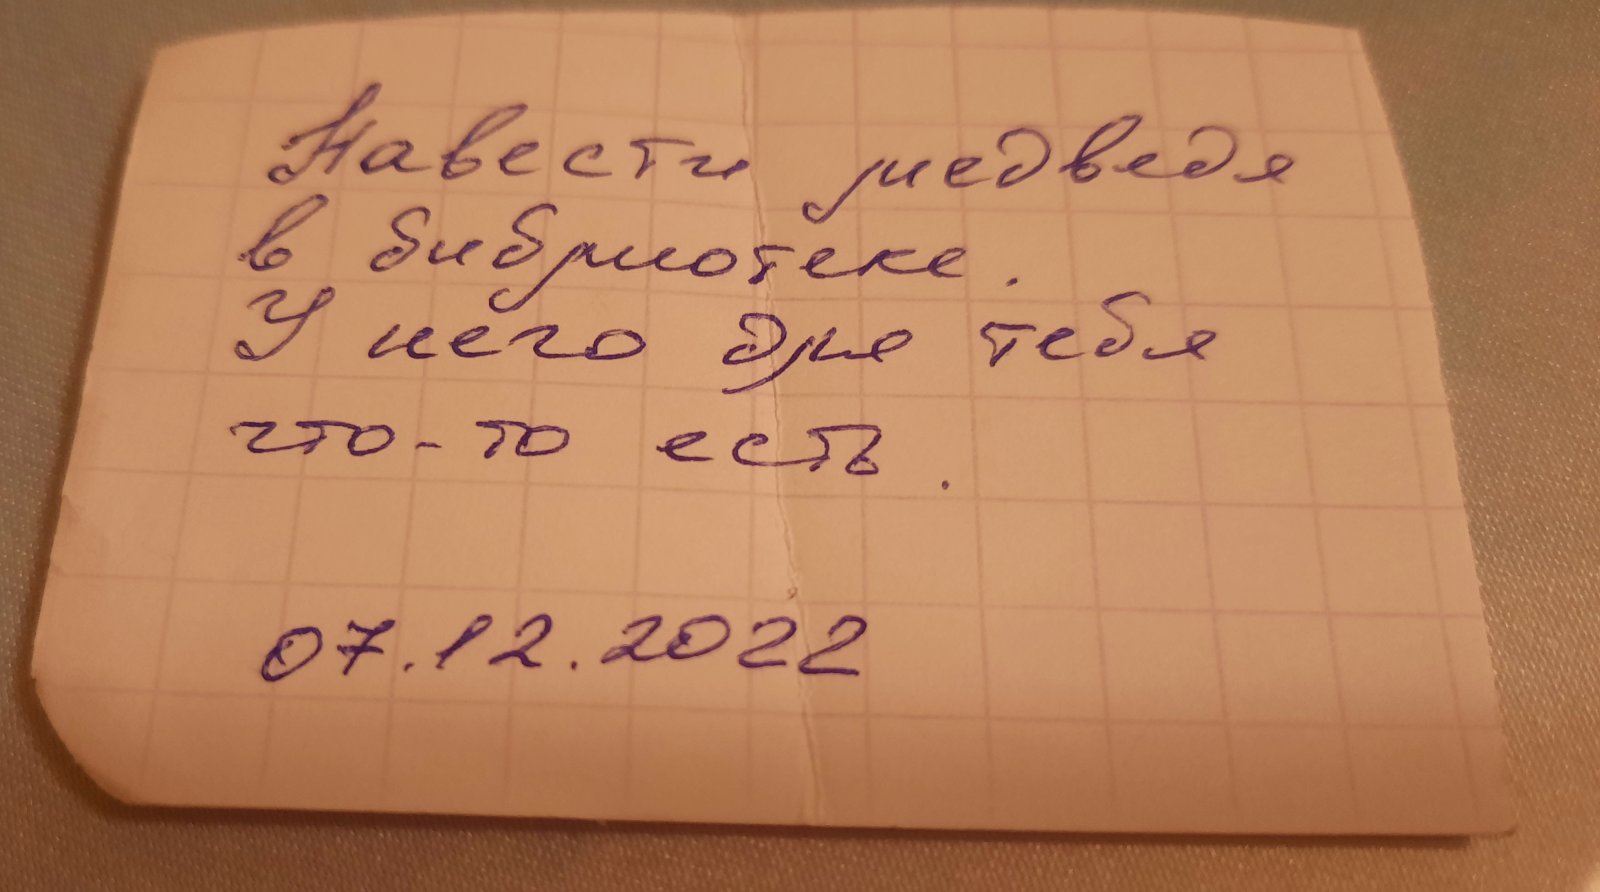 Навести медведя
в библиотеке.
У него для тебя
что-то есть.
07.12.2022